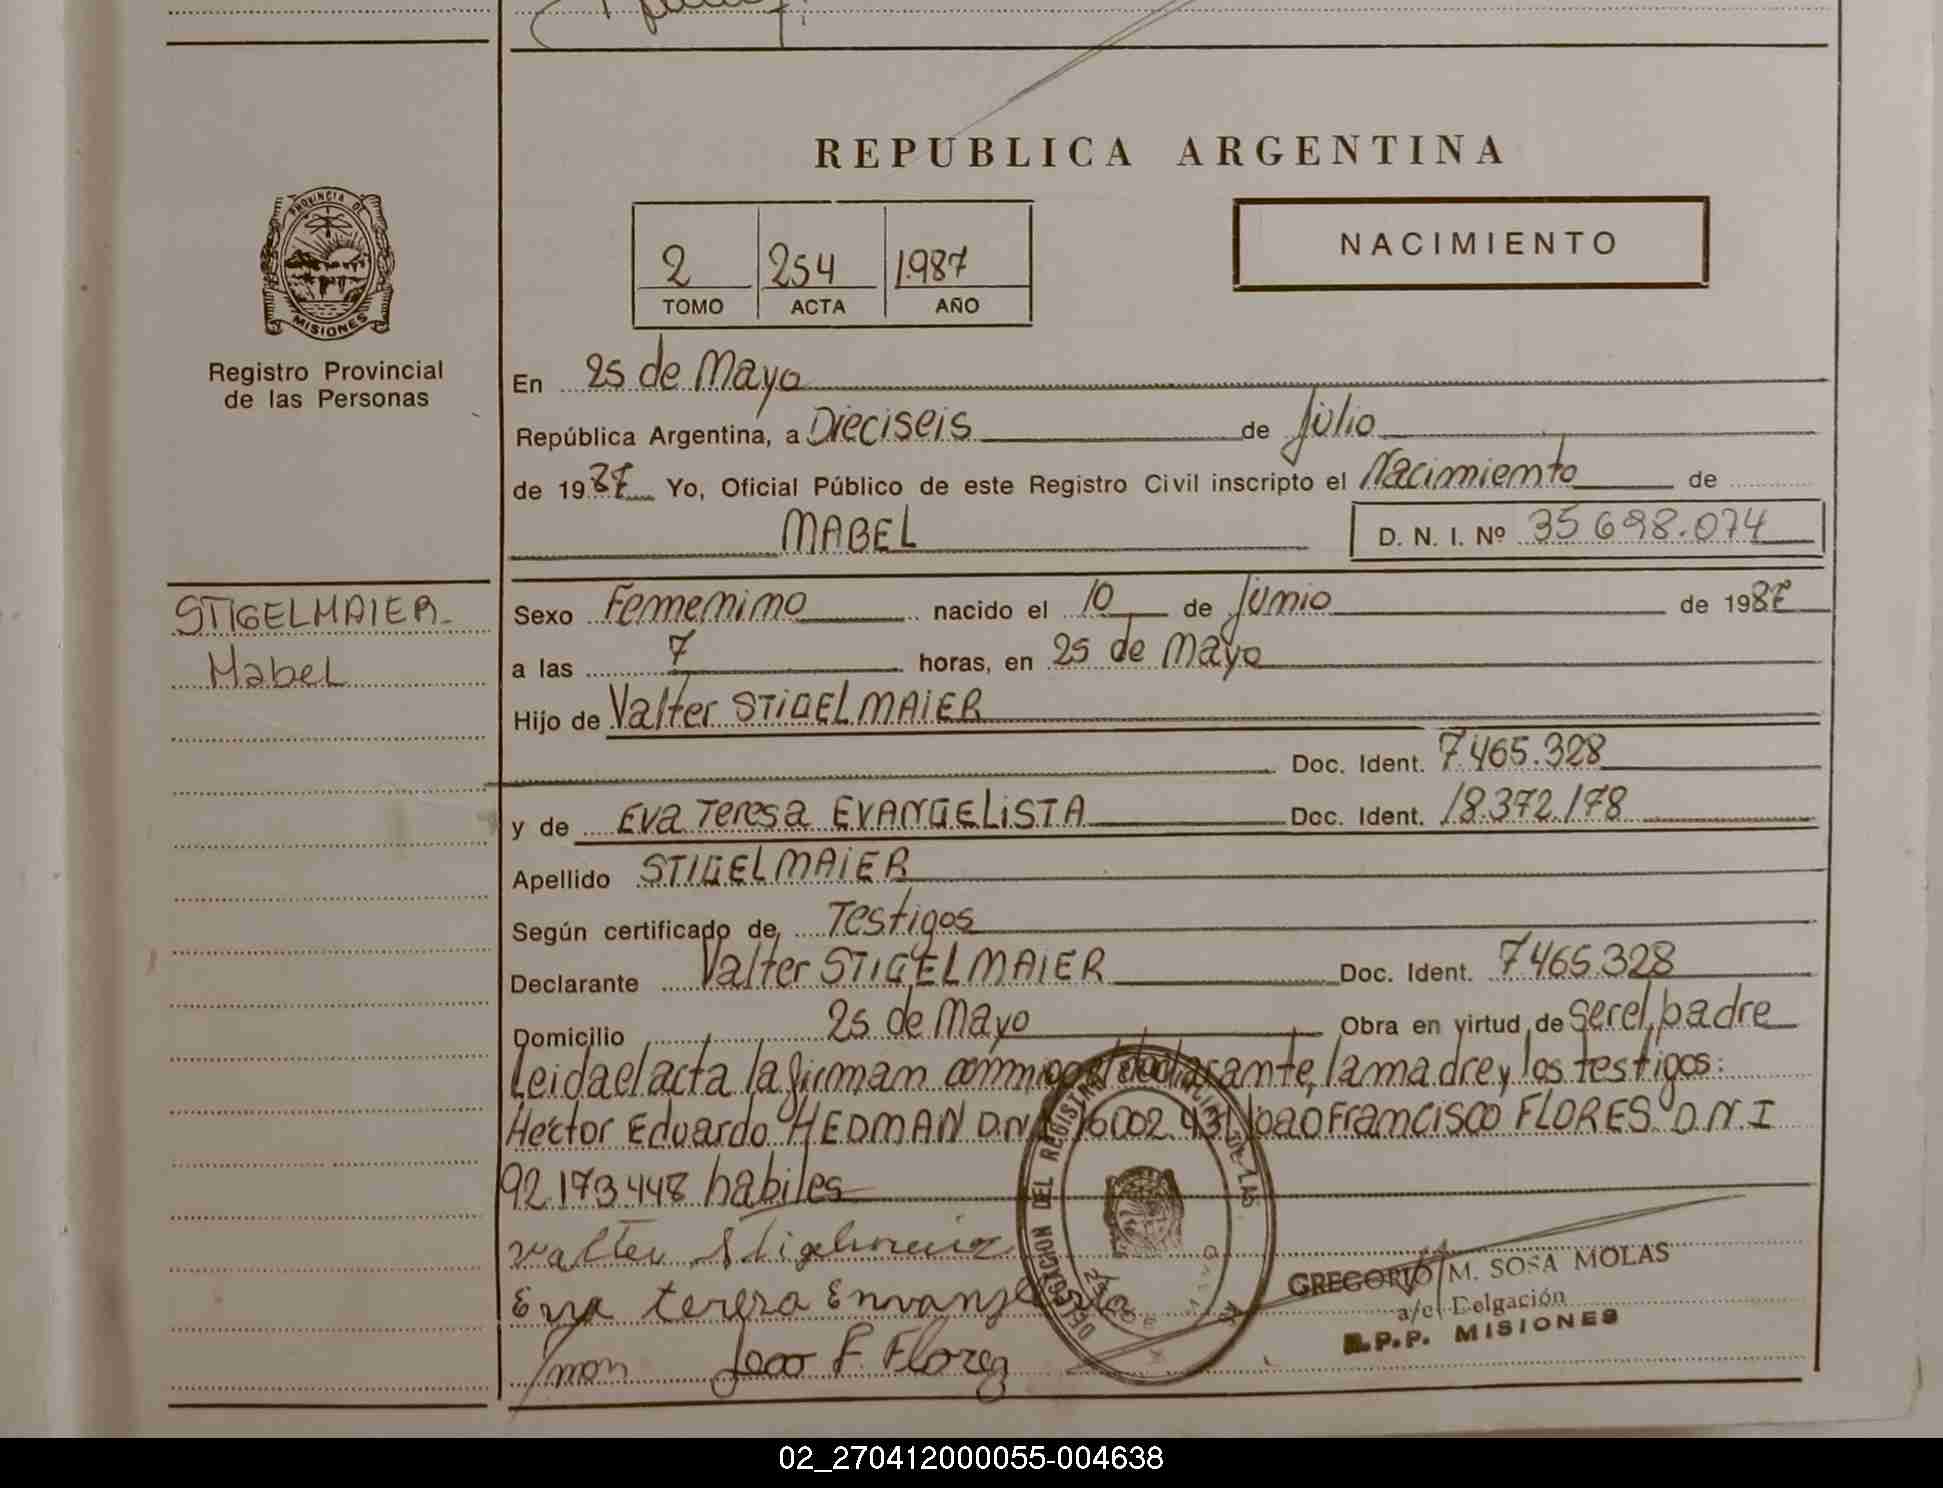 REPUBLICA ARGENTINA
PROVINCIA DE
MISIONES
Registro Provincial
de las Personas
2 254 1987
TOMO ACTA AÑO
NACIMIENTO
En 25 de Mayo
República Argentina, a Dieciseis de Julio
de 1987 Yo, Oficial Público de este Registro Civil inscripto el Nacimiento de
MABEL D. N. I. Nº 35698.074
STIGELMAIER
Mabel
Sexo Femenino nacido el 10 de Junio de 1987
a las 7 horas, en 25 de Mayo
Hijo de Valter STIGELMAIER
Doc. Ident. 7.465.328
y de Eva Teresa EVANGELISTA Doc. Ident. 18.372.178
Apellido STIGELMAIER
Según certificado de Testigos
Declarante Valter STIGELMAIER Doc. Ident. 7465.328
Domicilio 25 de Mayo Obra en virtud de ser el padre
Leida el acta la firman conmigo el declarante, la madre y los testigos:
Hector Eduardo HEDMAN D.N.I 16002.431 Joao Francisco FLORES D.N.I
92.173.448 habiles
Valter Stigelmaier
Eva teresa
Joao F. Florez
DELEGACION DEL REGISTRO PROVINCIAL DE LAS
GREGORIO M. SOSA MOLAS
a/c Delgación
R.P.P. MISIONES
02_270412000055-004638